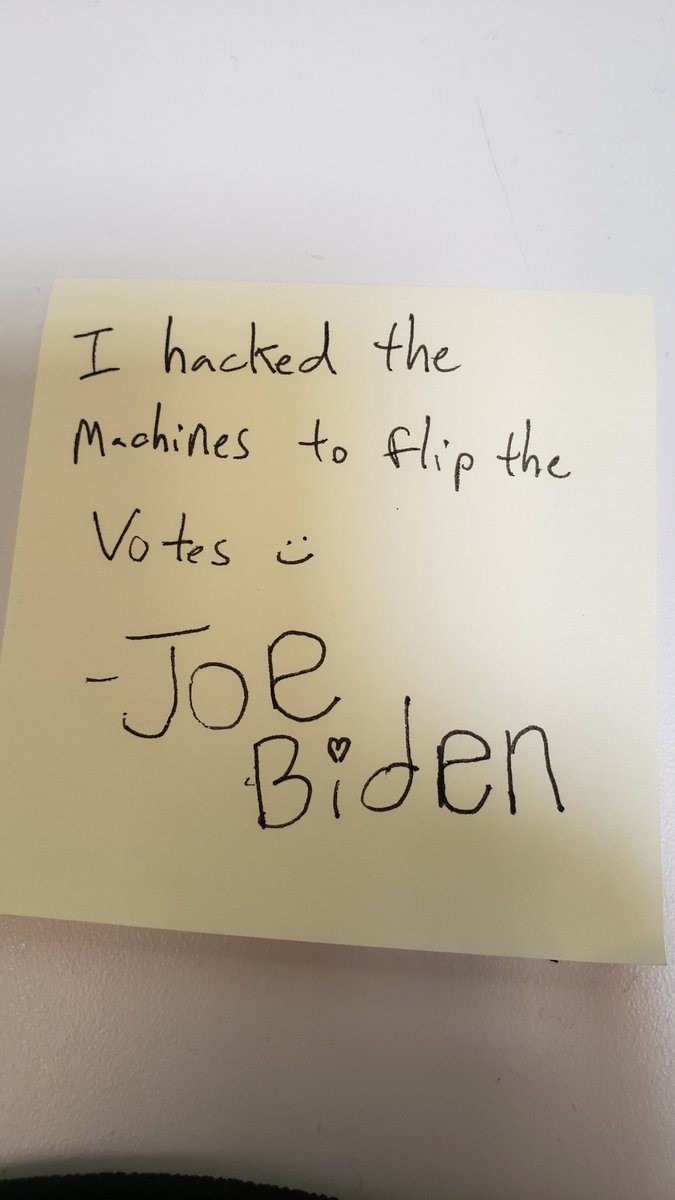 I hacked the
Machines to flip the
Votes :)
-Joe
Biden